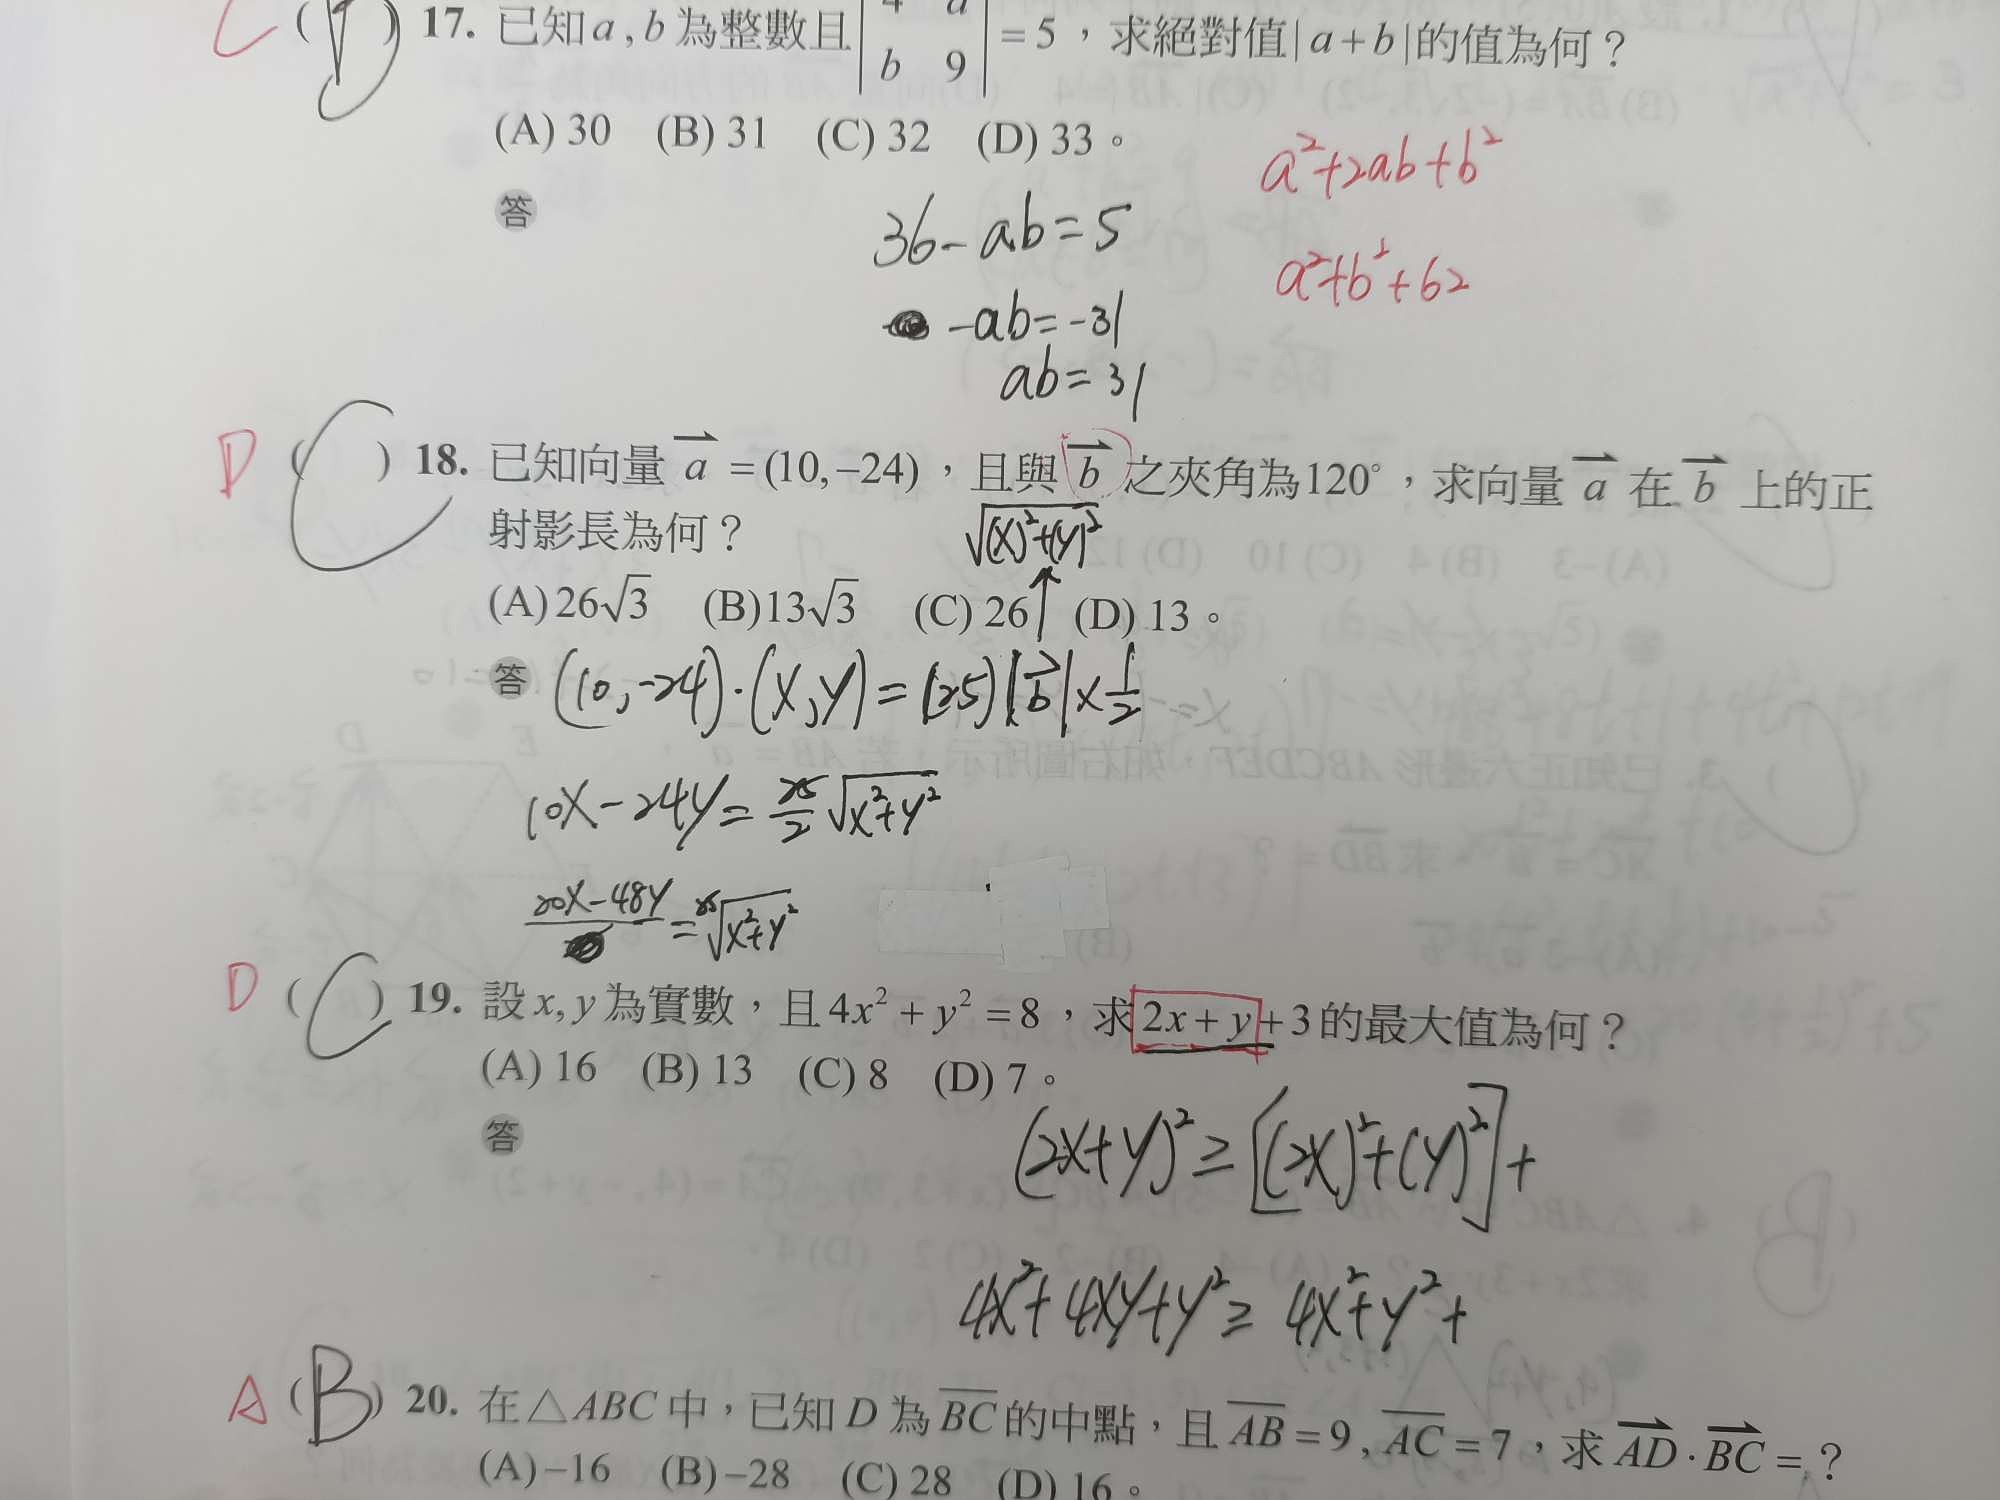 C ( ) 17. 已知 a , b 為整數且 | 4 a | = 5 , 求絕對值 | a + b | 的值為何?
b 9
(A) 30 (B) 31 (C) 32 (D) 33。
a²+2ab+b²
答
36-ab=5
a²+b²+62
-ab=-31
ab=31
D (C) 18. 已知向量 a = (10, −24) , 且與 b 之夾角為120° , 求向量 a 在 b 上的正
射影長為何?
√(x)²+(y)²
(A) 26√3 (B) 13√3 (C) 26 (D) 13。
答 (10,-24)·(x,y)=(25)|b|×1/2
10x-24y=25/2 √x²+y²
20x-48y = 25√x²+y²
D (C) 19. 設 x, y 為實數,且 4x² + y² = 8 , 求 2x + y + 3 的最大值為何?
(A) 16 (B) 13 (C) 8 (D) 7。
答
(2x+y)² ≥ [(2x)²+(y)²]+
4x²+4xy+y² ≥ 4x²+y²+
A (B) 20. 在△ABC 中,已知 D 為 BC 的中點,且 AB = 9 , AC = 7 , 求 AD · BC = ?
(A) −16 (B) −28 (C) 28 (D) 16。